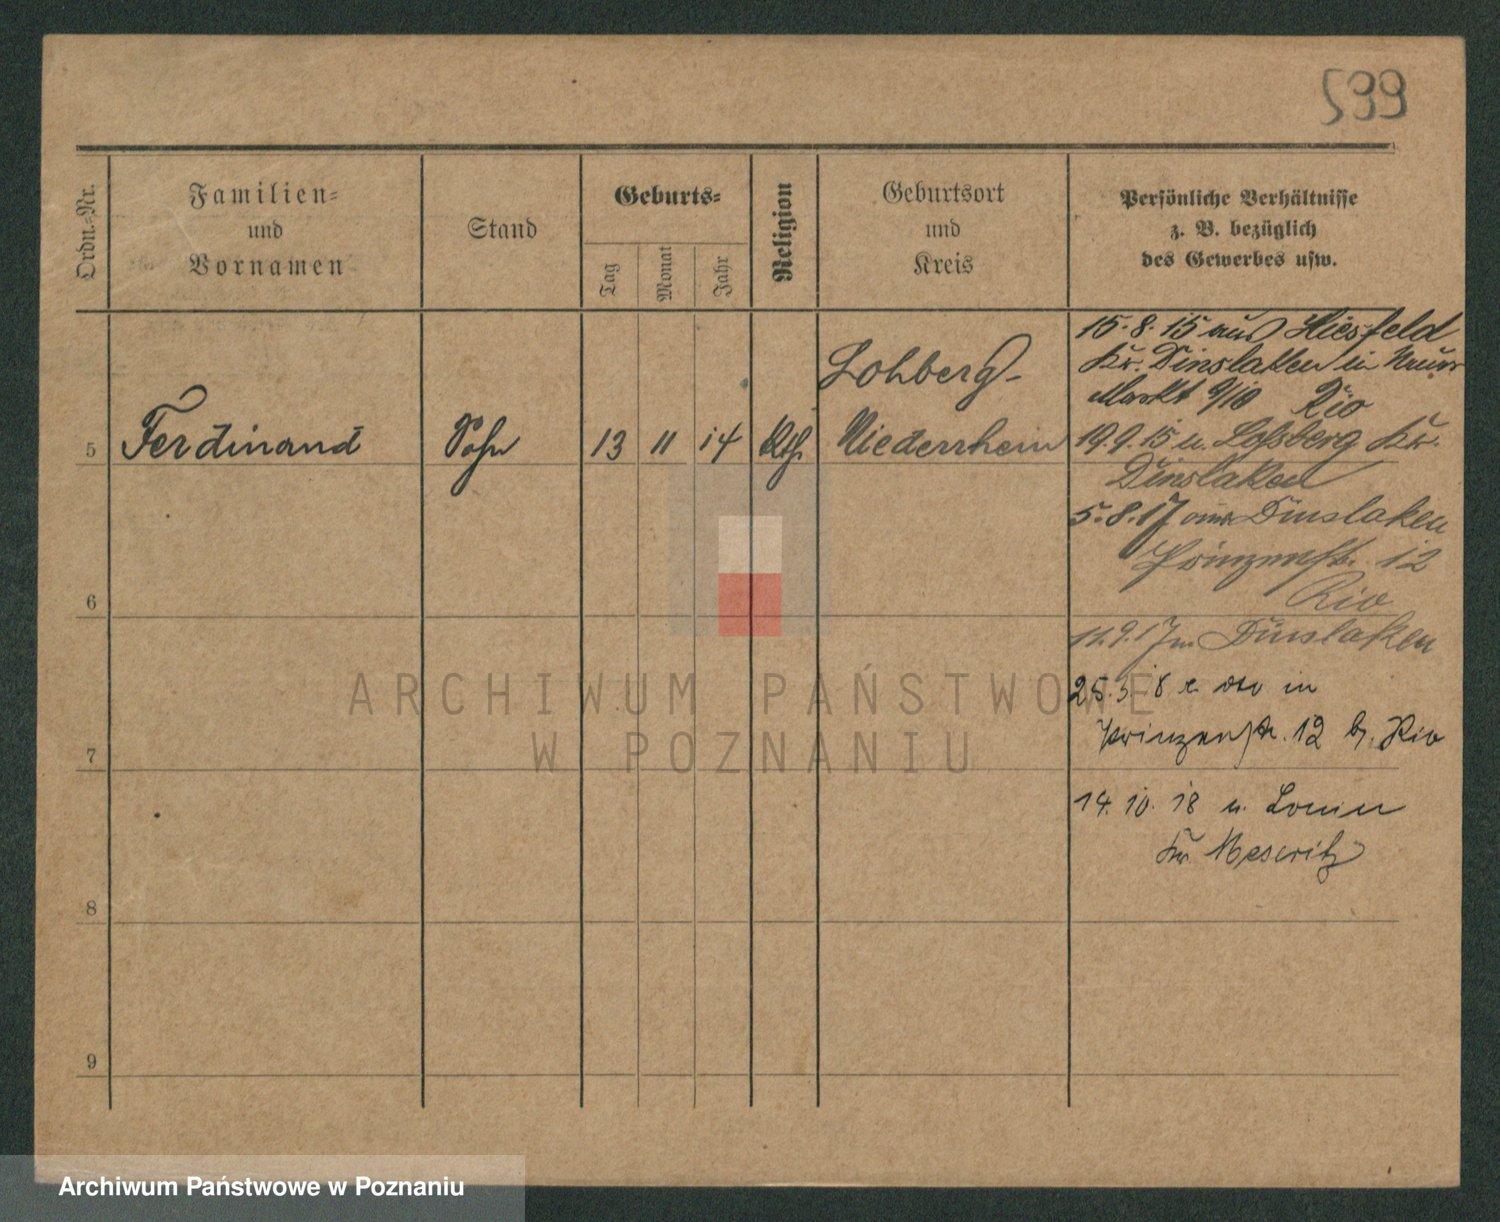 599
Ordn.-Nr.
Familien-
und
Vornamen
Stand
Geburts-
Tag
Monat
Jahr
Religion
Geburtsort
und
Kreis
Persönliche Verhältnisse
z. B. bezüglich
des Gewerbes usw.
5
Ferdinand
Sohn
13
11
14
Kth.
Lohberg-
Niederrhein
15.8.15 aus Hiesfeld
Kr. Dinslaken in
Markt 9/10 Rio
19.9.15 n. Lohberg Kr.
Dinslaken
5.8.17 aus Dinslaken
Prinzenstr. 12
Rio
11.9.17 n. Dinslaken
6
25. 18 in
Prinzenstr. 12 b. Rio
7
14.10.18 n.
Kr Meseritz
8
9
ARCHIWUM PAŃSTWOWE
W POZNANIU
Archiwum Państwowe w Poznaniu